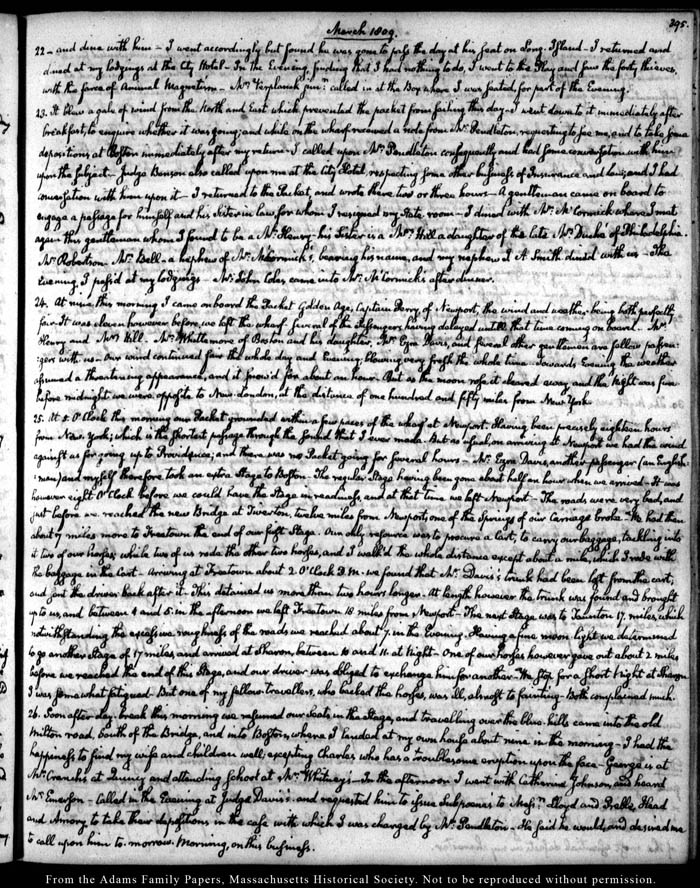 March 1809.
295.
22 - and dine with him - I went accordingly but found he was gone to pass the day at his seat on Long-Island - I returned and
dined at my lodgings at the City Hotel - In the Evening, finding that I had nothing to do, I went to the Play and saw the forty thieves,
with the farce of Animal Magnetism - Mr. Verplanck junr. called in at the Box where I was seated, for part of the Evening.
23. It blew a gale of wind from the North and East which prevented the packet from sailing this day. I went down to it immediately after
breakfast, to enquire whether it was going; and while on the wharf received a note from Mr. Pendleton, requesting to see me, and to take some
depositions at Boston immediately after my return - I called upon Mr. Pendleton consequently and had some conversation with him
upon the subject - Judge Benson also called upon me at the City Hotel, respecting some other business of Insurance and law; and I had
conversation with him upon it - I returned to the Packet, and wrote there two or three hours - A gentleman came on board to
engage a passage for himself and his Sister in law, for whom I resigned my State-room - I dined with Mr. McCormick where I met
again this gentleman whom I found to be a Mr. Henry; his Sister is a Mrs. Hill a daughter of the late Mr. of Philadelphia.
Mr. Robertson. Mr. Bell - a nephew of Mr. McCormick's, bearing his name, and my nephew J. A. Smith dined with us - The
Evening I pass'd at my lodgings - Mr. John Coles came into Mr. McCormick's after dinner.
24. At nine this morning I came on board the Packet Golden Age, Captain Perry of Newport, the wind and weather being both perfectly
fair. It was eleven however before we left the wharf several of the Passengers having delayed untill that time coming on board. Mr.
Henry and Mrs. Hill. Mr. Whittemore of Boston and his daughter, Mr. Ezra Davis, and several other gentlemen are fellow passen-
gers with us - Our wind continued fair the whole day and Evening, blowing very fresh the whole time. Towards Evening the weather
assumed a threatening appearance, and it snow'd for about an hour. But as the moon rose it cleared away, and the Night was fine
before midnight we were opposite to New-London, at the distance of one hundred and fifty miles from New York.
25. At 5 O'Clock this morning our Packet grounded within a few paces of the wharf at Newport. Having been precisely eighteen hours
from New-York; which is the shortest passage through the Sound that I ever made. But as usual, on arriving at Newport we had the wind
against us for going up to Providence; and there was no Packet going for several hours - Mr. Ezra Davis, another passenger (an English-
man) and myself therefore took an extra Stage to Boston. The regular Stage having been gone about half an hour when we arrived - It was
however eight O'Clock before we could have the Stage in readiness, and at that time we left Newport - The roads were very bad, and
just before we reached the new Bridge at Tiverton, twelve miles from Newport, one of the Springs of our Carriage broke - We had then
about 7 miles more to Freetown the end of our first Stage. Our only resource was to procure a Cart, to carry our baggage, tackling into
it two of our horses, while two of us rode the other two horses, and I walk'd the whole distance except about a mile, which I rode with
the baggage in the Cart. Arriving at Freetown about 2. O'Clock P.M. we found that Mr. Davis's trunk had been left from the cart;
and sent the driver back after it. This detained us more than two hours longer. At length however the trunk was found and brought
up to us, and between 4 and 5. in the afternoon we left Freetown 18 miles from Newport - The next Stage was to Taunton 17. miles, which
notwithstanding the excessive roughness of the roads we reached about 7. in the Evening. Having a fine moon light we determined
to go another Stage of 17 miles, and arrived at Sharon, between 10 and 11. at Night - One of our horses however gave out about 2 miles
before we reached the end of this Stage, and our driver was obliged to exchange him for another - We stop for a short Night at Sharon
I was somewhat fatigued. But one of my fellow-travellers, who backed the horses, was ill, almost to fainting - Both complained much.
26. Soon after day-break this morning we resumed our Seats in the Stage, and travelling over the blue-hills came into the old
Milton road, South of the Bridge, and into Boston, where I landed at my own house about nine in the morning - I had the
happiness to find my wife and children well, excepting Charles who has a troublesome eruption upon the face - George is at
Mr. Cranch's at Quincy and attending school at Mr. Whitney's - In the afternoon I went with Catherine Johnson, and heard
Mr. Emerson - Called in the Evening at Judge Davis's and requested him to issue Subpoenas to Messrs. Lloyd and Head
and Amory, to take their depositions in the case with which I was charged by Mr. Pendleton - He said he would, and desired me
to call upon him to-morrow Morning, on this business.
From the Adams Family Papers, Massachusetts Historical Society. Not to be reproduced without permission.